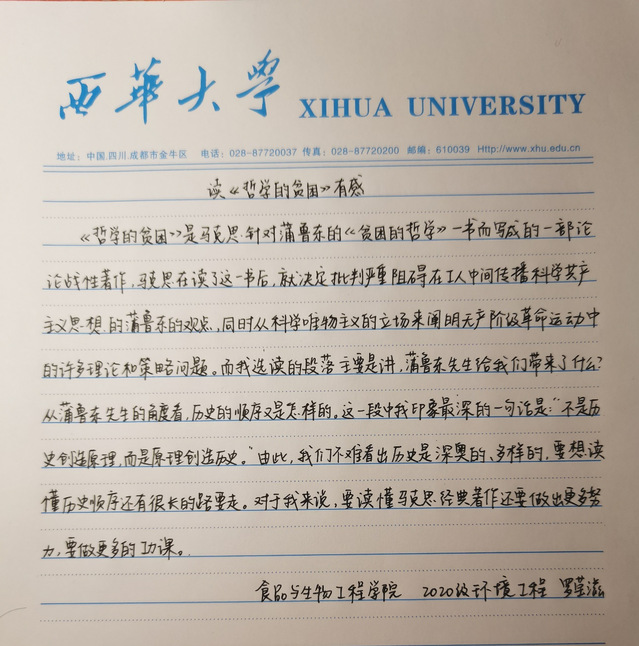 西華大學 XIHUA UNIVERSITY
地址：中国.四川.成都市金牛区 电话：028-87720037 传真：028-87720200 邮编：610039 Http://www.xhu.edu.cn
读《哲学的贫困》有感
《哲学的贫困》是马克思针对蒲鲁东的《贫困的哲学》一书而写成的一部论
论战性著作，马克思在读了这一书后，就决定批判严重阻碍在工人中间传播科学共产
主义思想的蒲鲁东的观点，同时从科学唯物主义的立场来阐明无产阶级革命运动中
的许多理论和策略问题。而我选读的段落主要是讲，蒲鲁东先生给我们带来了什么？
从蒲鲁东先生的角度看，历史的顺序又是怎样的。这一段中我印象最深的一句话是：“不是历
史创造原理，而是原理创造历史。”由此，我们不难看出历史是深奥的、多样的，要想读
懂历史顺序还有很长的路要走。对于我来说，要读懂马克思经典著作还要做出更多努
力，要做更多的功课。
食品与生物工程学院 2020级环境工程 罗莹滋